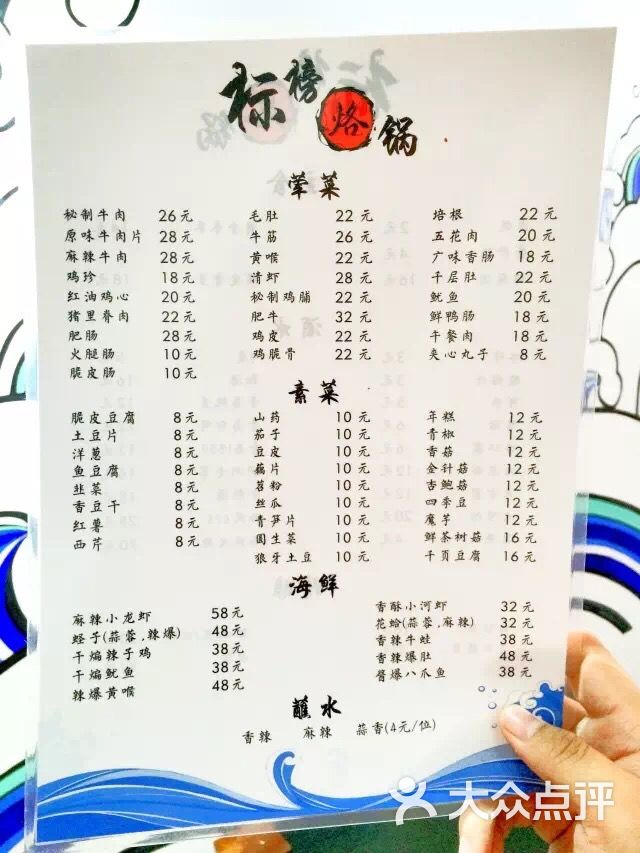 标榜烙锅
荤菜
秘制牛肉 26元 毛肚 22元 培根 22元
原味牛肉片 28元 牛筋 26元 五花肉 20元
麻辣牛肉 28元 黄喉 22元 广味香肠 18元
鸡珍 18元 清虾 28元 千层肚 22元
红油鸡心 20元 秘制鸡脯 22元 鱿鱼 20元
猪里脊肉 22元 肥牛 32元 鲜鸭肠 18元
肥肠 28元 鸡皮 22元 午餐肉 18元
火腿肠 10元 鸡脆骨 22元 夹心丸子 8元
脆皮肠 10元
素菜
脆皮豆腐 8元 山药 10元 年糕 12元
土豆片 8元 茄子 10元 青椒 12元
洋葱 8元 豆皮 10元 香菇 12元
鱼豆腐 8元 藕片 10元 金针菇 12元
韭菜 8元 苕粉 10元 杏鲍菇 12元
香豆干 8元 丝瓜 10元 四季豆 12元
红薯 8元 青笋片 10元 魔芋 12元
西芹 8元 圆生菜 10元 鲜茶树菇 16元
狼牙土豆 10元 千页豆腐 16元
海鲜
麻辣小龙虾 58元 香酥小河虾 32元
蛏子(蒜蓉,辣爆) 48元 花蛤(蒜蓉,麻辣) 32元
干煸辣子鸡 38元 香辣牛蛙 38元
干煸鱿鱼 38元 香辣爆肚 48元
辣爆黄喉 48元 酱爆八爪鱼 38元
蘸水
香辣 麻辣 蒜香(4元/位)
大众点评